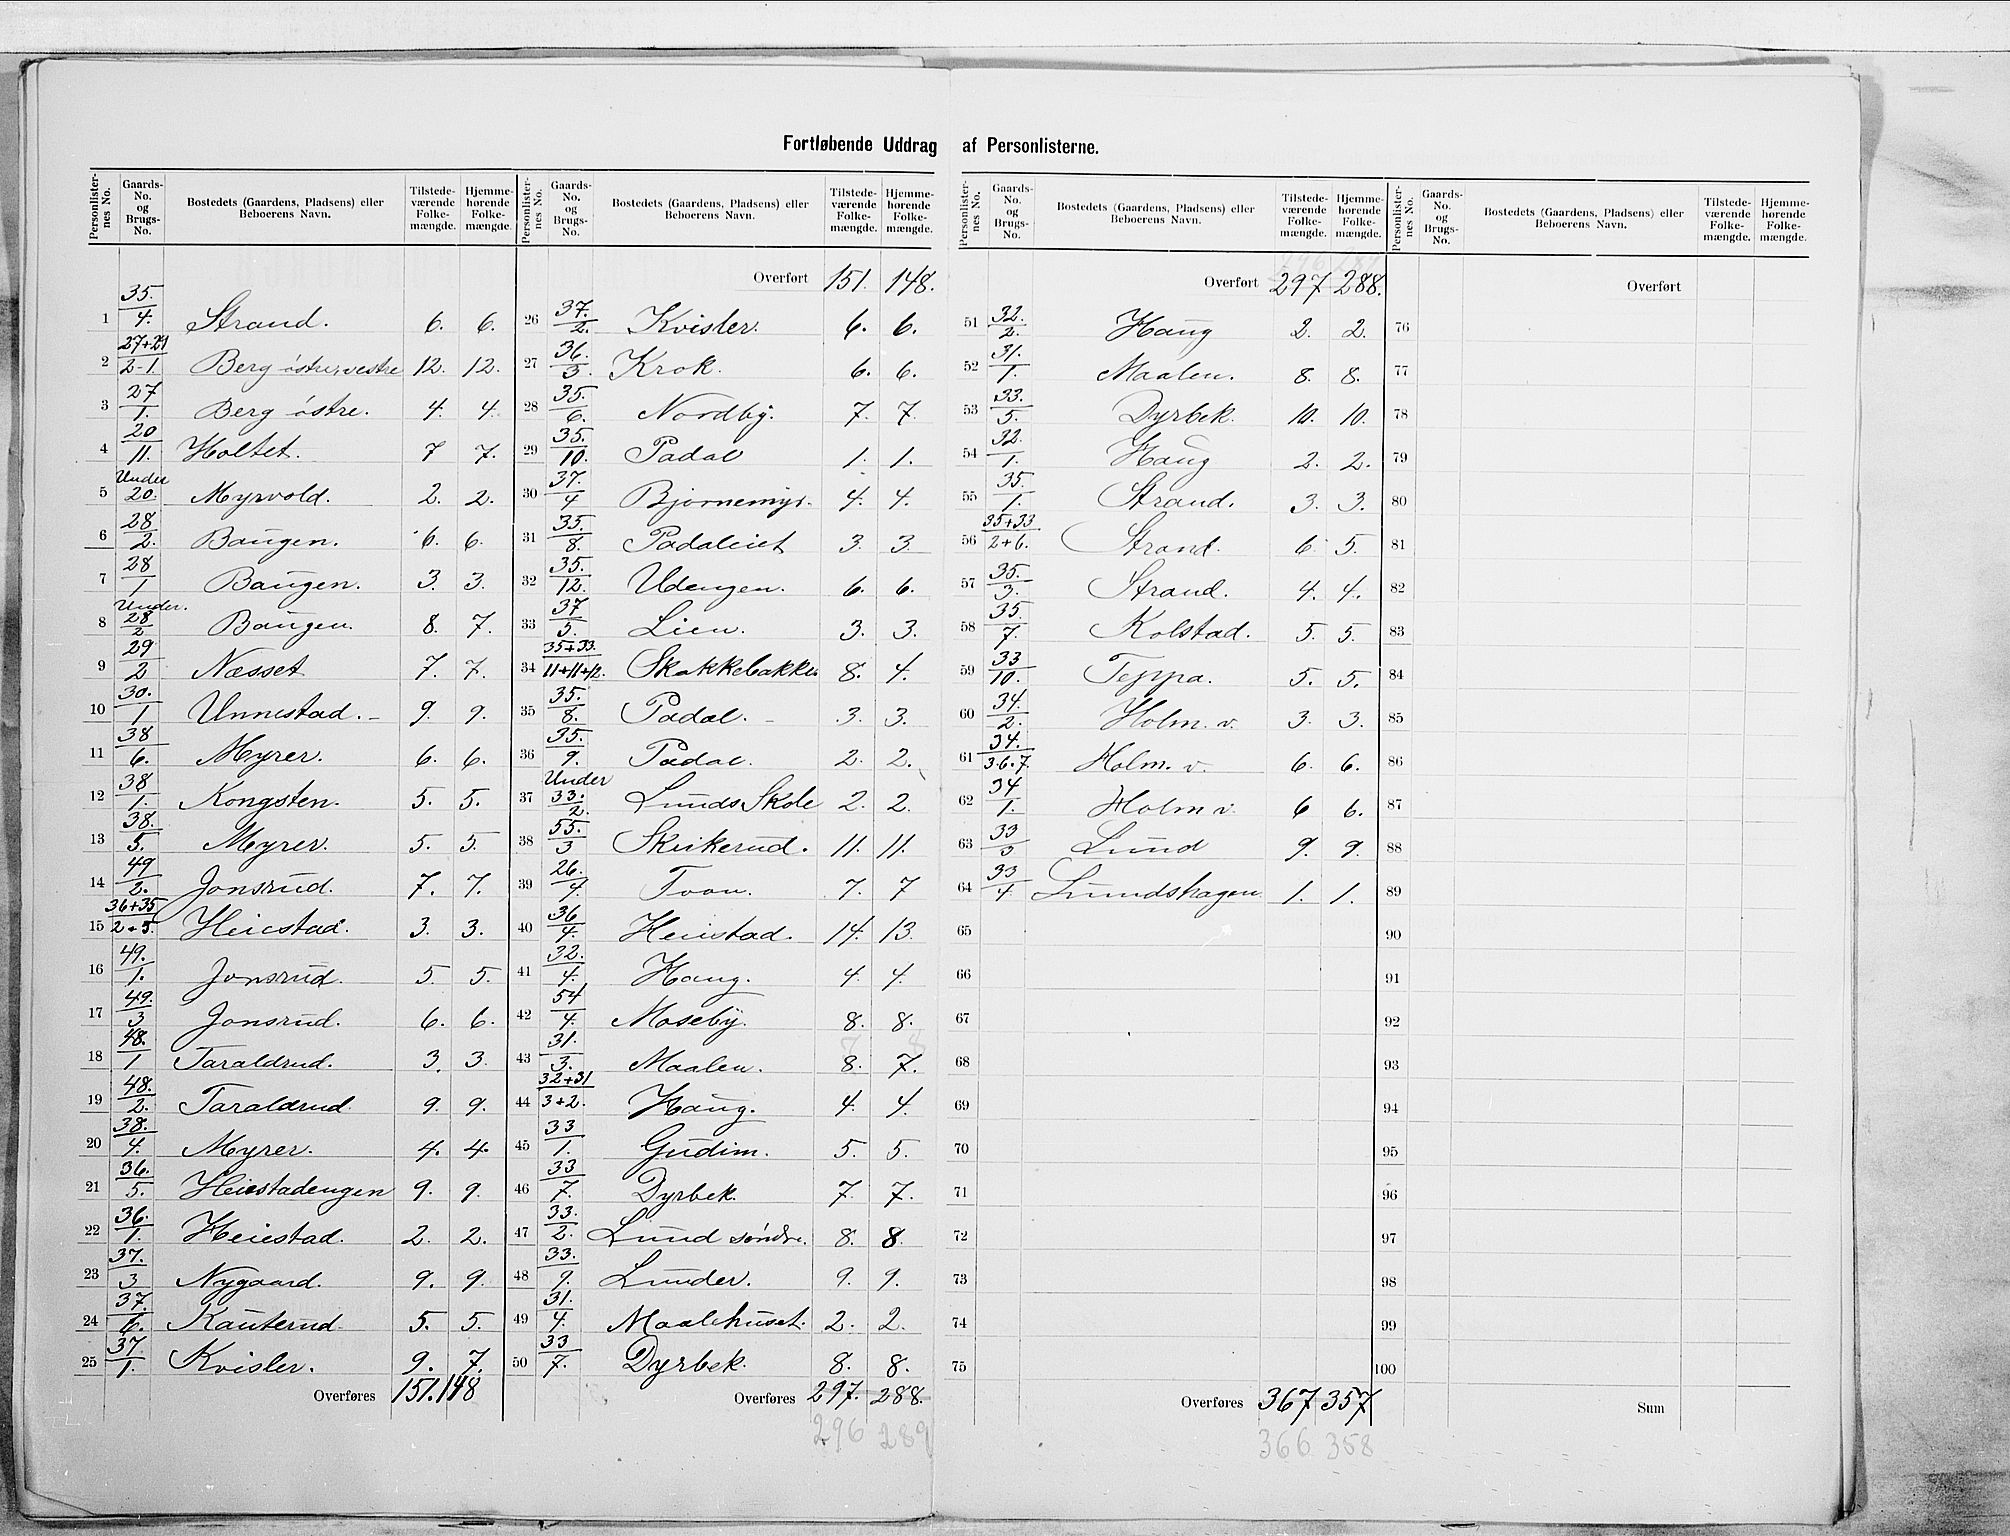 Fortløbende Uddrag af Personlisterne.
Personlisternes No. Gaards-No. og Brugs-No. Bostedets (Gaardens, Pladsens) eller Beboerens Navn. Tilstedeværende Folkemængde. Hjemmehørende Folkemængde.
1 35./4. Strand. 6. 6.
2 27+29/2-1. Berg østre, vestre 12. 12.
3 27/1. Berg østre. 4. 4.
4 20/11. Holtet. 7 7.
5 Under 20. Myrvold. 2. 2.
6 28/2. Baugen. 6. 6.
7 28/1 Baugen. 3. 3.
8 Under. 28/2 Baugen. 8. 7.
9 29/2 Næsset 7. 7.
10 30./1 Unnestad. 9. 9.
11 38/6. Myrer. 6. 6.
12 38/1. Kongsten. 5. 5.
13 38./5. Myrer. 5. 5.
14 49/2. Jonsrud. 7. 7.
15 36+35/2+5. Heiestad. 3. 3.
16 49./1. Jonsrud. 5 5.
17 49./3 Jonsrud. 6. 6.
18 48./1 Taraldrud. 3. 3.
19 48./2. Taraldrud. 9. 9.
20 38./4. Myrer. 4. 4.
21 36./5. Heiestadengen 9. 9.
22 36./1. Heiestad. 2. 2.
23 37./3 Nygaard. 9. 9.
24 37./6. Kauterud. 5. 5.
25 37/1. Kvisler. 9. 7.
Overføres 151. 148
Personlisternes No. Gaards-No. og Brugs-No. Bostedets (Gaardens, Pladsens) eller Beboerens Navn. Tilstedeværende Folkemængde. Hjemmehørende Folkemængde.
Overført 151. 148.
26 37./2. Kvisler. 6. 6.
27 36./3. Krok. 6. 6.
28 35./6. Nordby. 7. 7.
29 35./10. Padal 1. 1.
30 37./4 Bjørnemyr. 4. 4.
31 35./8. Padaleiet 3. 3.
32 35./12. Udengen. 6. 6.
33 37/5. Lien. 3. 3.
34 35+33./11+11+12. Skakkebakken 8. 4.
35 35./8. Padal. 3. 3.
36 35./9. Padal. 2. 2.
37 Under 33./2. Lunds Skole 2. 2.
38 55./3 Skikerud. 11. 11.
39 26./4. Toon. 7. 7
40 36/4. Heiestad. 14. 13.
41 32./4. Haug. 4. 4.
42 54/4. Moseby. 8. 8.
43 31./3. Maalen. 8. 7.
44 32+31/3+2. Haug. 4. 4.
45 33/1. Gudim. 5. 5.
46 33/7. Dyrbek. 7. 7.
47 33./2. Lund søndre. 8. 8.
48 33./9. Lunder. 9. 9.
49 31./4. Maalehuset. 2. 2.
50 33/7. Dyrbek. 8. 8.
Overføres 297. 288.
296 289
Personlisternes No. Gaards-No. og Brugs-No. Bostedets (Gaardens, Pladsens) eller Beboerens Navn. Tilstedeværende Folkemængde. Hjemmehørende Folkemængde.
Overført 297 288.
51 32./2. Haug 2. 2.
52 31./1. Maalen. 8. 8.
53 33./5. Dyrbek. 10. 10.
54 32./1. Haug 2. 2.
55 35./1. Strand. 3. 3.
56 35+33./2+6. Strand. 6. 5.
57 35./3. Strand. 4. 4.
58 35./7. Kolstad. 5. 5.
59 33/10. Teppa. 5. 5.
60 34./2. Holm. v. 3. 3.
61 34./3.6.7. Holm. v. 6. 6.
62 34/1. Holm v. 6 6.
63 33/3 Lund 9. 9.
64 33/4 Lundshagen 1. 1.
65
66
67
68
69
70
71
72
73
74
75
Overføres 367 357
366 358
Personlisternes No. Gaards-No. og Brugs-No. Bostedets (Gaardens, Pladsens) eller Beboerens Navn. Tilstedeværende Folkemængde. Hjemmehørende Folkemængde.
Overført
76
77
78
79
80
81
82
83
84
85
86
87
88
89
90
91
92
93
94
95
96
97
98
99
100
Sum